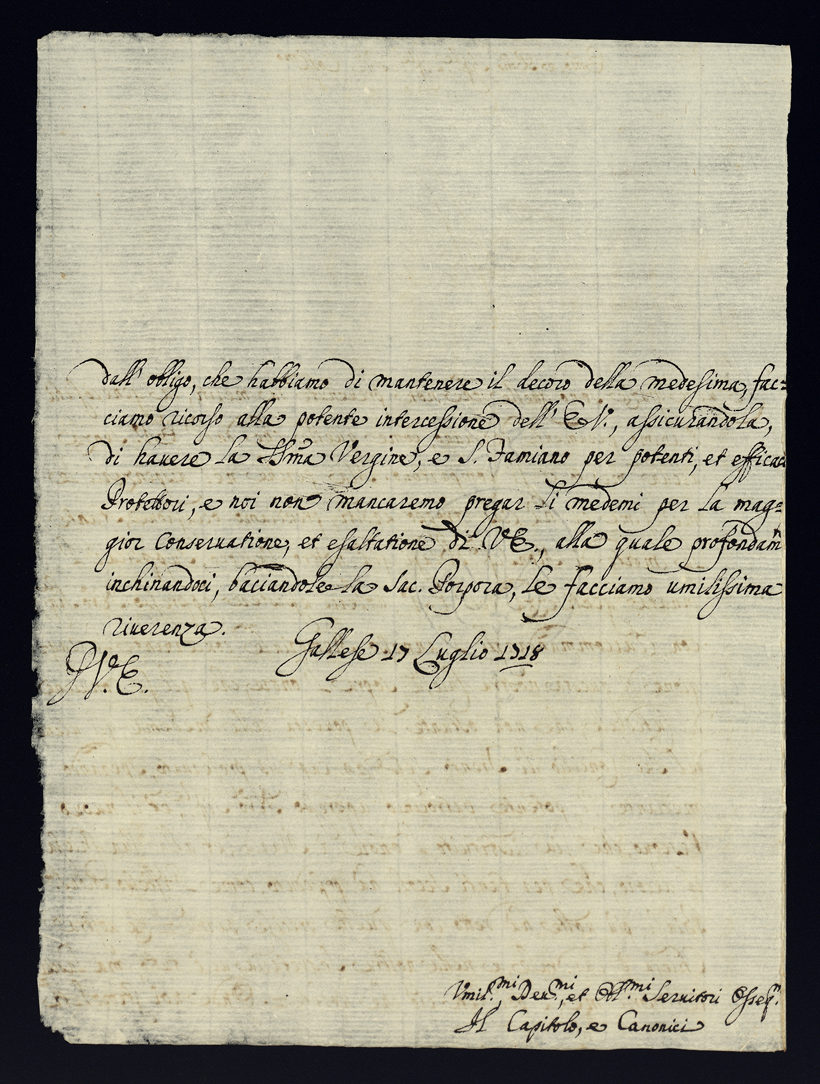 dall' obligo, che habbiamo di mantenere il decoro della medesima, fac=
ciamo ricorso alla potente intercessione dell' E.V., assicurandola,
di hauere la SSma Vergine, e S. Famiano per potenti, et efficaci
Protettori, e noi non mancaremo pregar li medemi per la mag=
gior conseruatione, et esaltatione di V.E., alla quale profondam
inchinandoci, baciandole la Sac. Porpora, le facciamo umilissima
riuerenza.
Gallese 17 Luglio 1718
V.E.
Vmil.mi, Deu.mi, et Obl.mi Seruitori Osseq.
Il Capitolo, e Canonici